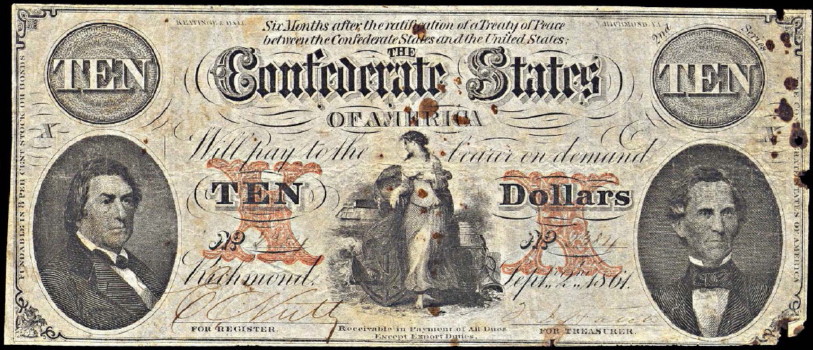 KEATINGE & BALL
RICHMOND, VA
Six Months after the ratification of a Treaty of Peace
between the Confederate States and the United States;
2nd Series
TEN
THE
Confederate States
TEN
OF AMERICA
X
X
Will pay to the bearer on demand
TEN
Dollars
No
No
Richmond. Sept. 2. 1861.
FOR REGISTER.
Receivable in Payment of All Dues
Except Export Duties.
FOR TREASURER.
FUNDABLE IN 8 PER CENT STOCK OR BONDS
STATES OF AMERICA